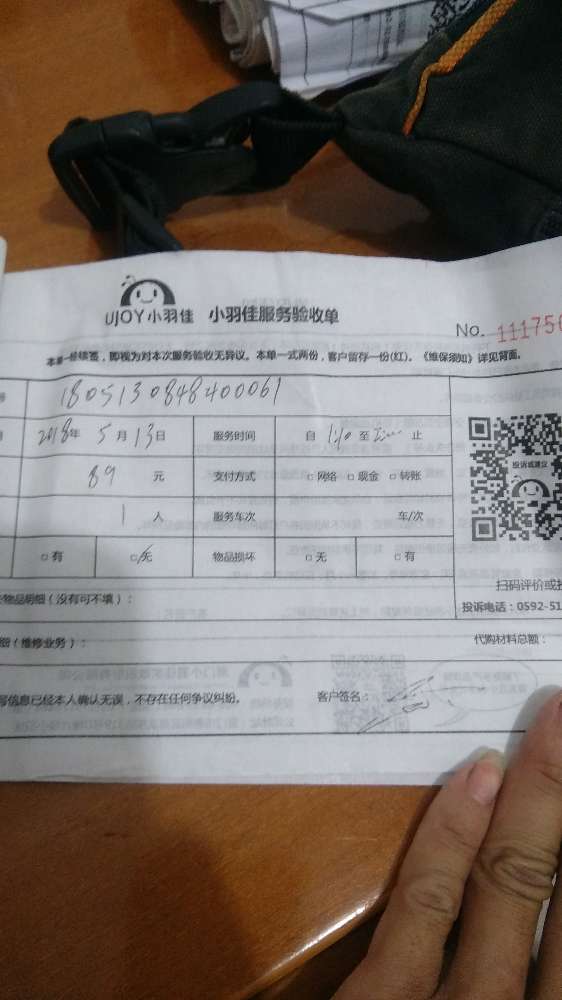 UJOY小羽佳 小羽佳服务验收单
No. 111756
本单一经续签，即视为对本次服务验收无异议。本单一式两份，客户留存一份(红)。《维保须知》详见背面。
号 180513084840061
2018年 5月13日 服务时间 自 至 止
89 元 支付方式 □网络 □现金 □转账
1 人 服务车次 车/次
□有 □无 物品损坏 □无 □有
投诉或建议
扫码评价或投
物品明细（没有可不填）：
投诉电话：0592-51
（维修业务）： 代购材料总额：
写信息已经本人确认无误，不存在任何争议纠纷。 客户签名：